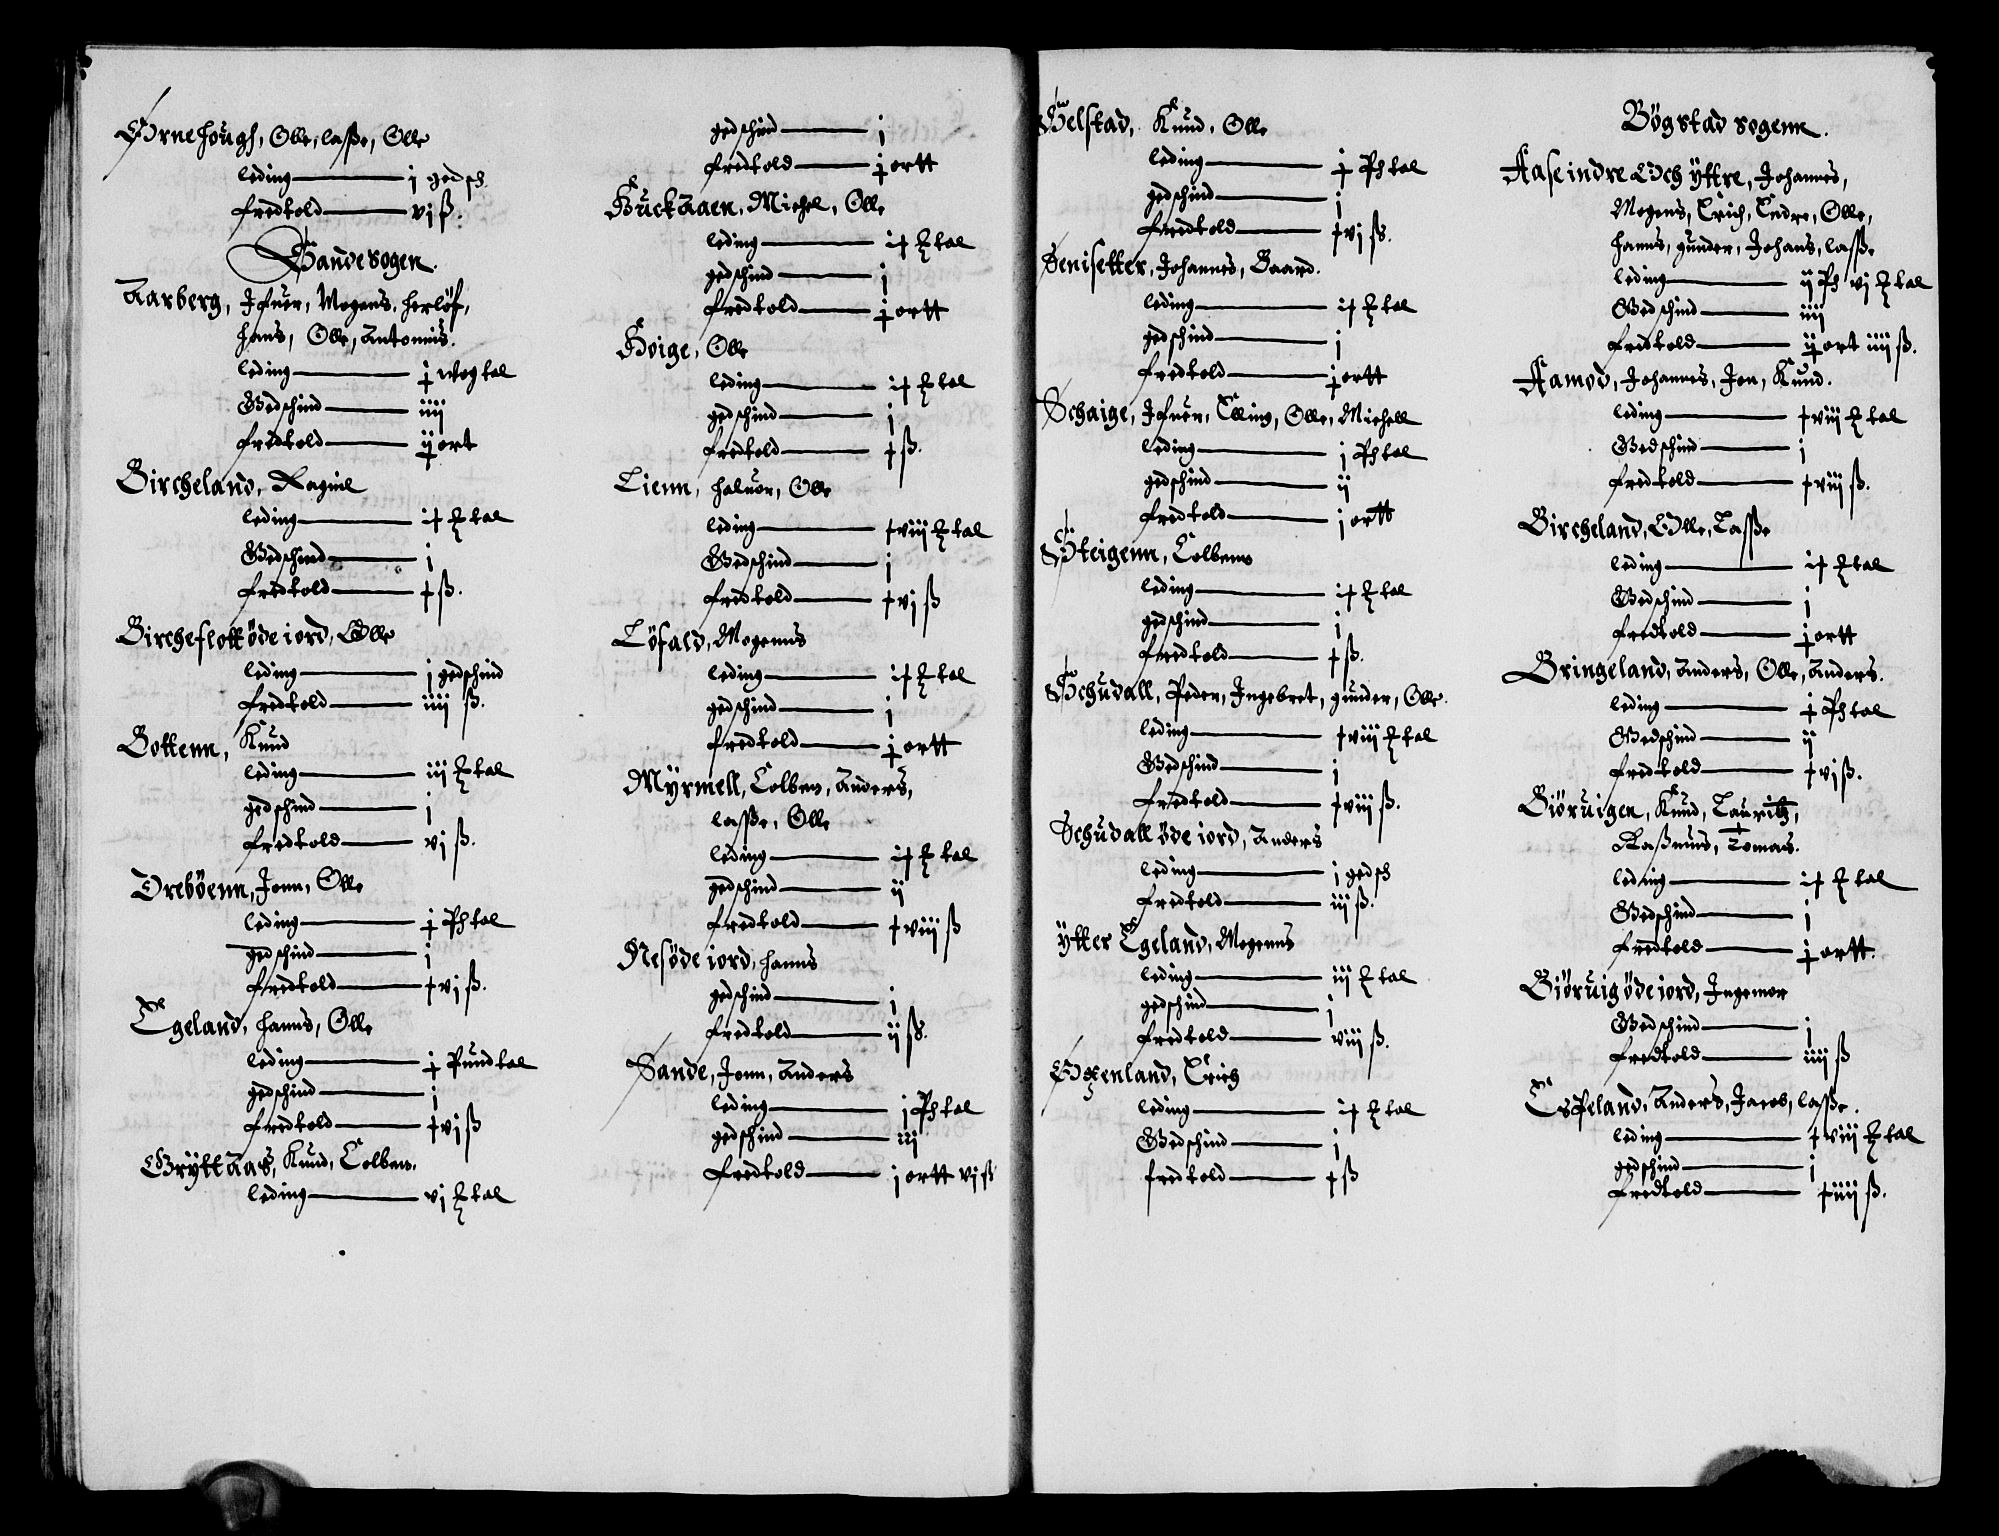 Ørnehough, Olle, lasse, Olle
leding j gedsk
fredtold vj ß.
Sande sogen.
Aarberg, Jfuer, Mogens, herlöf,
hans, Olle, Antonius.
leding j wog tal
Gedschind iiij
fredtold ij ort
Bircheland, Ragnil
leding
Gedschind j
fredtold ß.
Bircheflott öde iord, Olle
leding j gedschind
fredtold iiij ß.
Bottenn, Knud
leding iij tal
gedschind j
fredtold vj ß.
Dreböenn, Jonn, Olle
leding j Ph tal
gedschind j
fredtold vj ß.
Egeland, Hanns, Olle
leding j Pund tal
gedschind j
fredtold vj ß
Gryttaas, Knud, Colben.
leding vj tal
gedschind j
fredtold j ortt
Huckaaen, Michel, Olle
leding tal
gedschind j
fredtold j ortt
Hoige, Olle
leding tal
gedschind j
fredtold ß.
Lienn, Haluor, Olle
leding viij tal
Gedschind j
fredtold vj ß
Löfald, Mogenns
leding tal
gedschind j
fredtold j ortt
Myrmell, Colben, Anders,
lasse, Olle
leding tal
gedschind ij
fredtold viij ß
Nesöde iord, Hanns
gedschind j
fredtold ij ß.
Sande, Jonn, Anders
leding j Ph tal
gedschind iij
fredtold j ortt vj ß
Selstad, Knud, Olle
leding j Ph tal
gedschind j
fredtold vj ß.
Senisetter, Johannes, Baard.
leding tal
gedschind j
fredtold j ortt
Schaige, Jfuer, Elling, Olle, Michell
leding j Ph tal
gedschind ij
fredtold j ortt
Steigenn, Colbenn
leding tal
gedschind j
fredtold ß.
Schudall, Peder, Ingebret, gunder, Olle.
leding viij tal
Gedschind j
fredtold viij ß.
Schudall öde iord, Anders
leding j gedsh
fredtold iij ß.
ytter Egeland, Mogenns
leding iij tal
gedschind j
fredtold viij ß.
Öxenland, Erich
leding tal
Gedschind j
fredtold ß
Bögstad sogenn.
Aase indre Och yttre, Johannes,
Mogens, Erich, Endre, Olle,
Hanns, gunder, Johans, lasse
leding ij Ph vj tal
Gedschind iiij
fredtold ij ort iiij ß.
Aamod, Johannes, Jon, Knud.
leding viij tal
Gedschind j
fredtold viij ß.
Bircheland, Olle, Lasse
leding tal
Gedschind j
fredtold j ortt
Bringeland, Anders, Olle, Anders.
leding j Ph tal
Gedschind ij
fredtold vj ß.
Giöruigen, Knud, Lauritz,
Rasmus, Tomas.
leding tal
Gedschind j
fredtold j ortt.
Giöruig öde iord, Ingemor
Gedschind j
fredtold iiij ß
Espeland, Anders, Jacob, lasse.
leding viij tal
gedschind j
fredtold iiij ß.